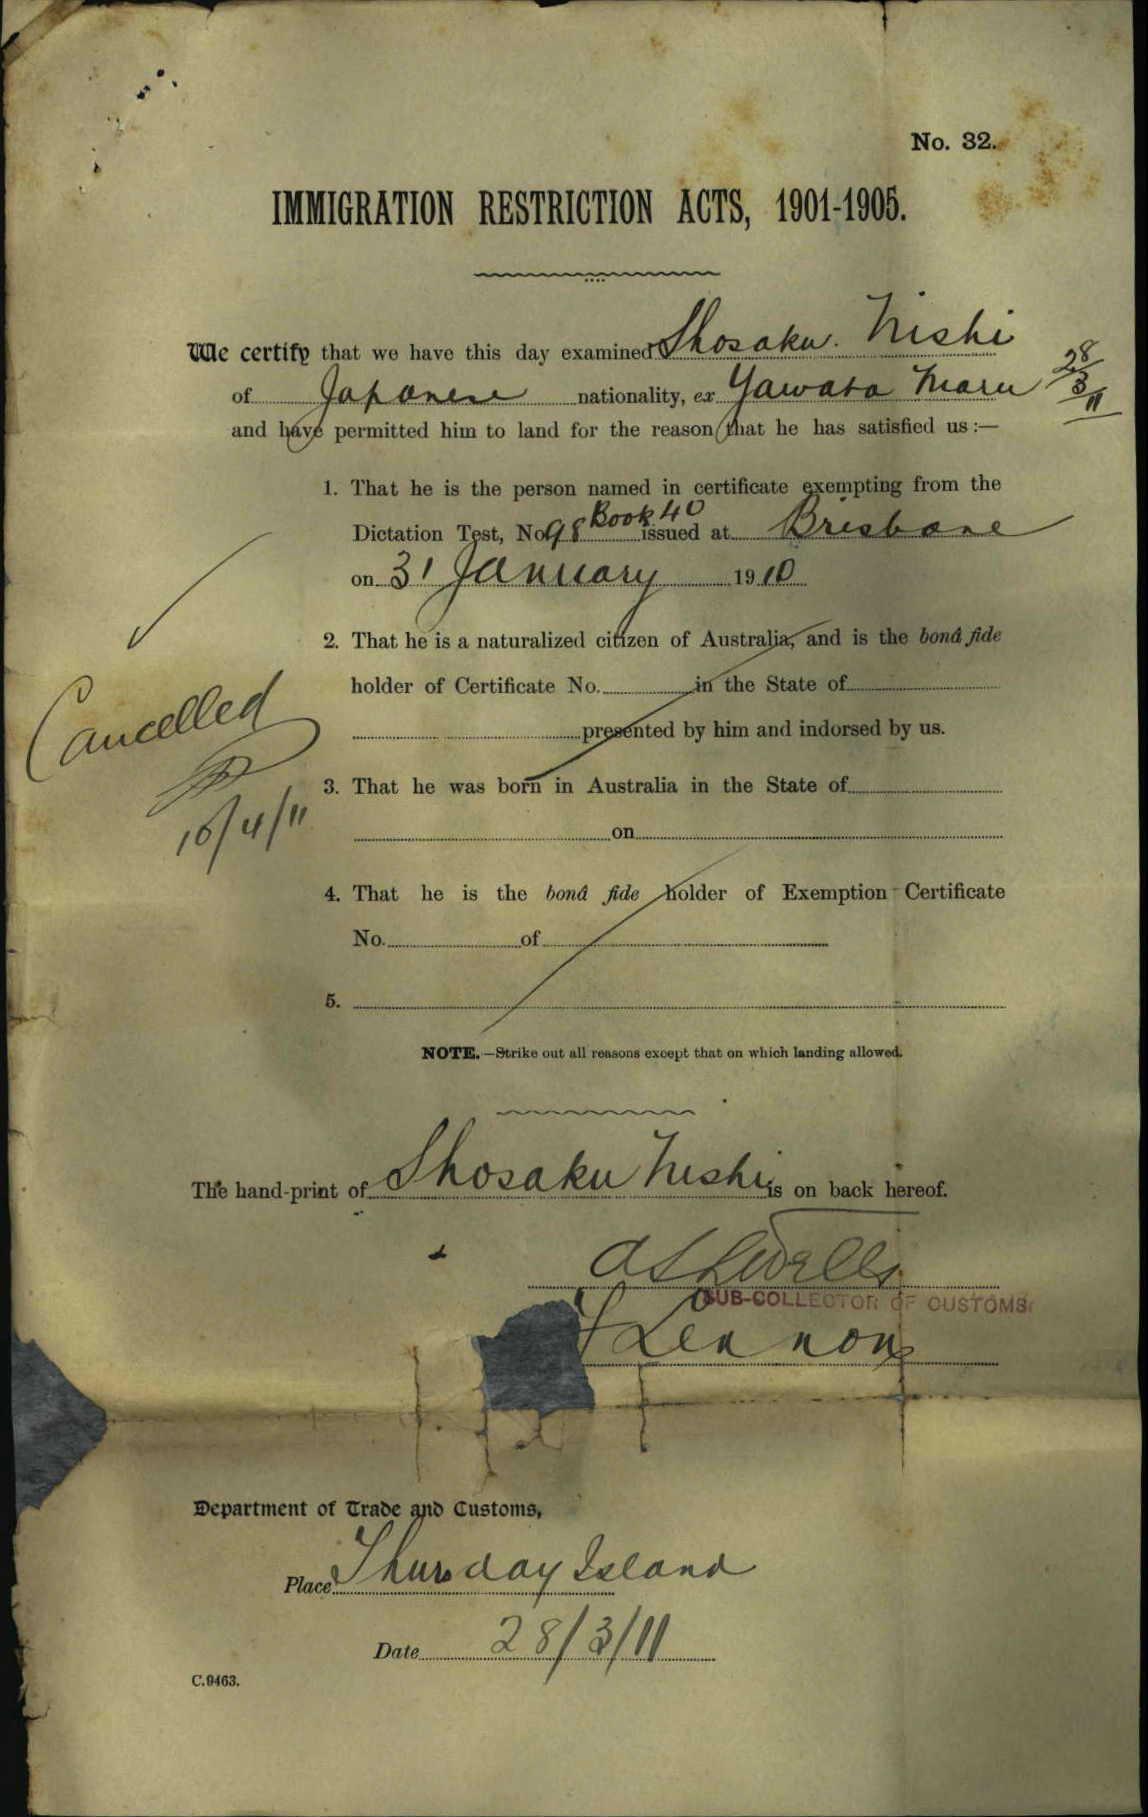 No. 32.
IMMIGRATION RESTRICTION ACTS, 1901-1905.
We certify that we have this day examined Shosaku Nishi
of Japanese nationality, ex Yawata Maru 28/3/11
and have permitted him to land for the reason that he has satisfied us:—
1. That he is the person named in certificate exempting from the
Dictation Test, No. 98 Book 40 issued at Brisbane
on 31 January 1910
2. That he is a naturalized citizen of Australia, and is the bonâ fide
holder of Certificate No. in the State of
presented by him and indorsed by us.
Cancelled
10/4/11
3. That he was born in Australia in the State of
on
4. That he is the bonâ fide holder of Exemption Certificate
No. of
5.
NOTE.—Strike out all reasons except that on which landing allowed.
The hand-print of Shosaku Nishi is on back hereof.
SUB-COLLECTOR OF CUSTOMS
Lennon
Department of Trade and Customs,
Place Thursday Island
Date 28/3/11
C.9463.